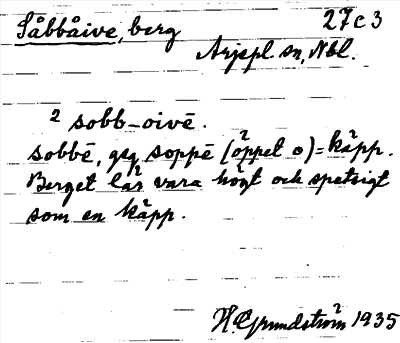 Såbbåive, berg 27c3
Arjepl. sn, Nbl.
² sobb-oivē.
sobbē, geg soppē (öppet o) = käpp.
Berget lär vara högt och spetsigt
som en käpp.
H. Grundström 1935